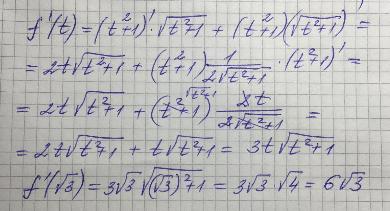 f'(t) = (t²+1)' · √(t²+1) + (t²+1)(√(t²+1))' =
= 2t√(t²+1) + (t²+1) 1/(2√(t²+1)) · (t²+1)' =
= 2t√(t²+1) + (t²+1)^√(t²+1) 2t/(2√(t²+1)) =
= 2t√(t²+1) + t√(t²+1) = 3t√(t²+1)
f'(√3) = 3√3 √((√3)²+1) = 3√3 · √4 = 6√3